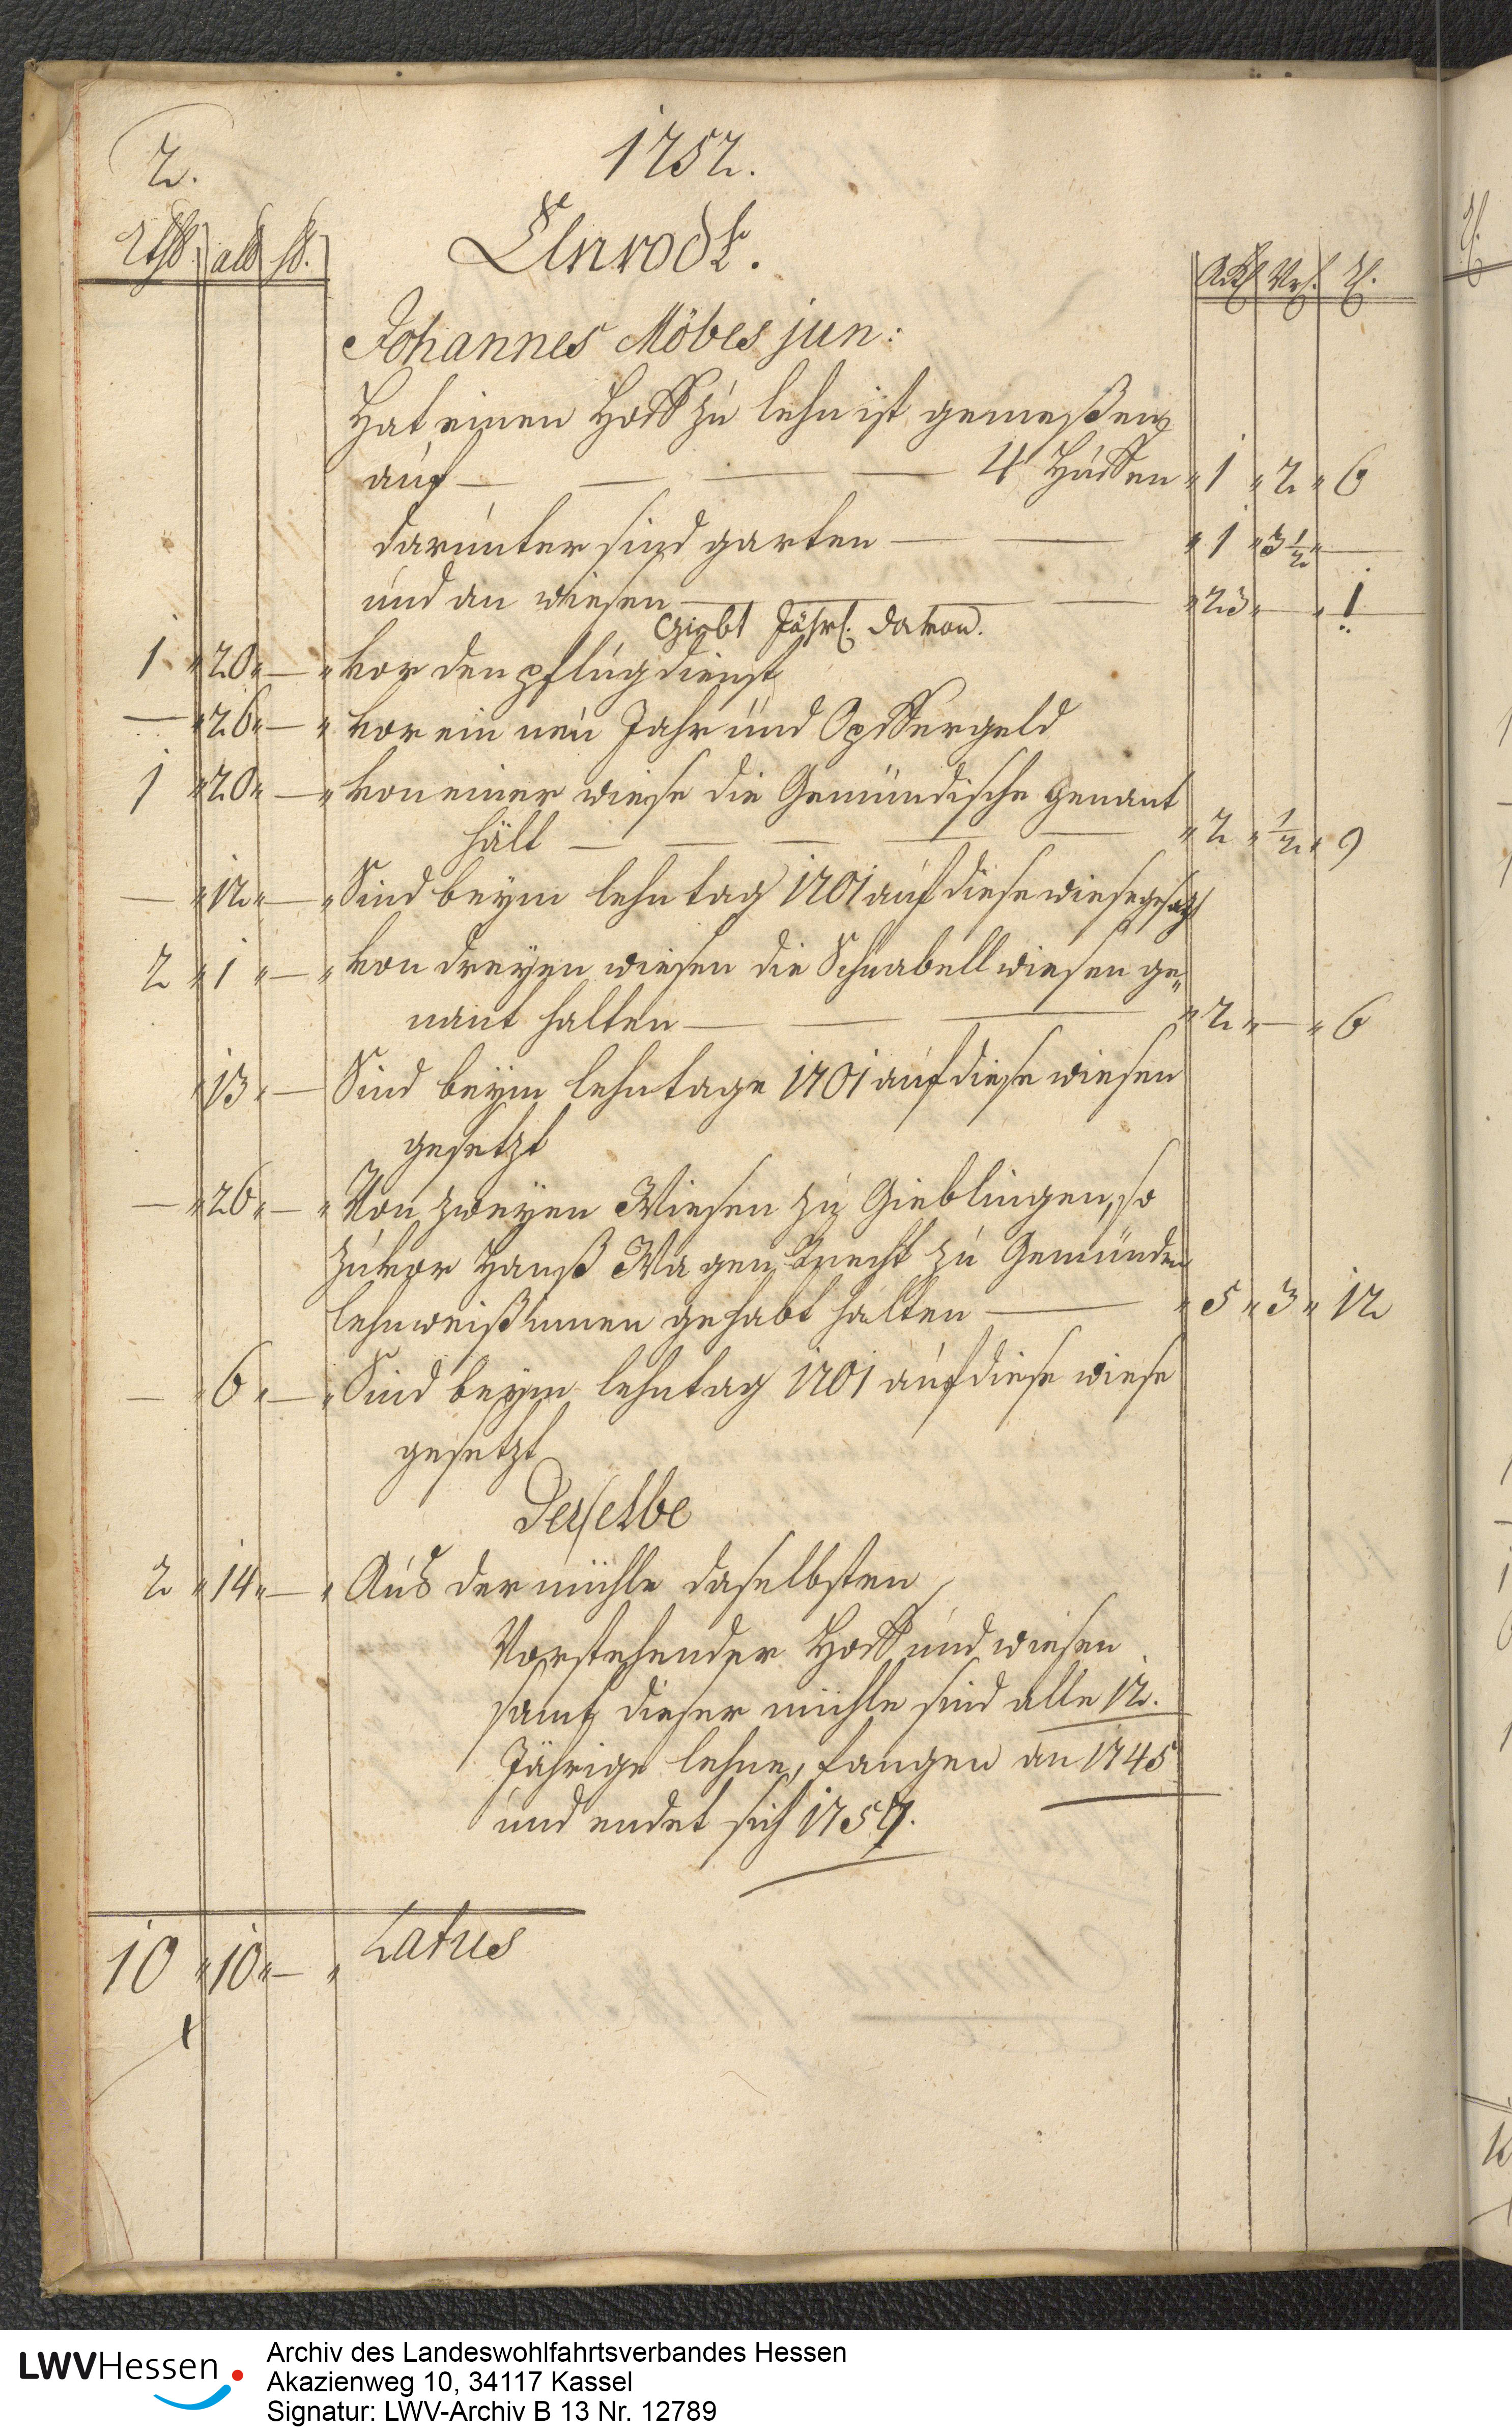 2.
1752.
Rthlr. alb hlr.
Elnrodt.
Ack. Vrt. R.
Johannes Möbes jun:
Hat einen Hoff zu lehn ist gemeßen
auf — — — — 4 Hüffen " 1 " 2 " 6
darunter sind garten — — " 1 " 3 1/2 " —
und an wiesen — — — " 23 " — " 1
Giebt Jährl. davon.
1 " 20 " — " vor den pflugdienst
— " 26 " — " vor ein neu Jahr und Opffergeld
1 " 20 " — " von einer wiese die Gemündische genant
hält — — — — — " 2 " 1/2 " 9
— " 12 " — " Sind beym lehntag 1701 auf diese wiese gesetzt
2 " 1 " — " von dreyen wiesen die Schnabell wiesen ge„
nant halten — — — " 2 " — " 6
" 13 " — Sind beym lehntage 1701 auf diese wiesen
gesetzt
— " 26 " — " Von zweyen Wiesen zu Gieblingen, so
zuvor Hanß Wagenknecht zu Gemünden
lehnweiß innen gehabt halten — " 5 " 3 " 12
— " 6 " — " Sind beym lehntag 1701 auf diese wiese
gesetzt
Derselbe
2 " 14 " — " Aus der mühle daselbsten
Vorstehender Hoff und wiesen
samt dieser mühle sind alle 12.
Jährige lehne, fangen an 1745
und endet sich 1757.
10 " 10 " — " Latus
LWVHessen
Archiv des Landeswohlfahrtsverbandes Hessen
Akazienweg 10, 34117 Kassel
Signatur: LWV-Archiv B 13 Nr. 12789